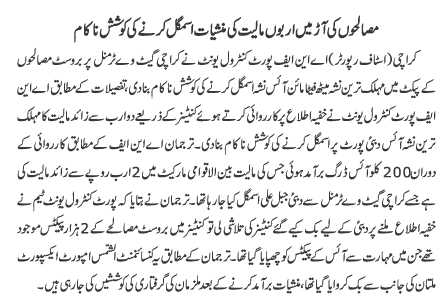 مصالحوں کی آڑ میں اربوں مالیت کی منشیات اسمگل کرنے کی کوشش ناکام
کراچی (اسٹاف رپورٹر) اے این ایف پورٹ کنٹرول یونٹ نے کراچی گیٹ وے ٹرمنل پر بروسٹ مصالحوں
کے پیکٹ میں مہلک ترین نشہ میتھ فیٹامائن آئس نشہ اسمگل کرنے کی کوشش ناکام بنادی، تفصیلات کے مطابق اے این
ایف پورٹ کنٹرول یونٹ نے خفیہ اطلاع پر کارروائی کرتے ہوئے کنٹینر کے ذریعے دو ارب سے زائد مالیت کا مہلک
ترین نشہ آئس دبئی پورٹ پر اسمگل کرنے کی کوشش ناکام بنادی۔ ترجمان اے این ایف کے مطابق کارروائی کے
دوران 200 کلو آئس ڈرگ برآمد ہوئی جس کی مالیت بین الاقوامی مارکیٹ میں 2 ارب روپے سے زائد مالیت کی
ہے جسے کراچی گیٹ وے ٹرمنل سے دبئی جبل علی اسمگل کیا جارہا تھا۔ ترجمان نے بتایا کہ پورٹ کنٹرول یونٹ ٹیم نے
خفیہ اطلاع ملنے پر دبئی کے لیے بک کیے گئے کنٹینر کی تلاشی لی تو کنٹینر میں بروسٹ مصالحے کے 2 ہزار پیکٹس موجود
تھے جن میں مہارت سے آئس کے پیکٹس کو چھپایا گیا تھا۔ ترجمان کے مطابق یہ کنسائمنٹ الشمس امپورٹ ایکسپورٹ
ملتان کی جانب سے بک کروایا گیا تھا، منشیات برآمد کرنے کے بعد ملزمان کی گرفتاری کی کوششیں کی جارہی ہیں۔